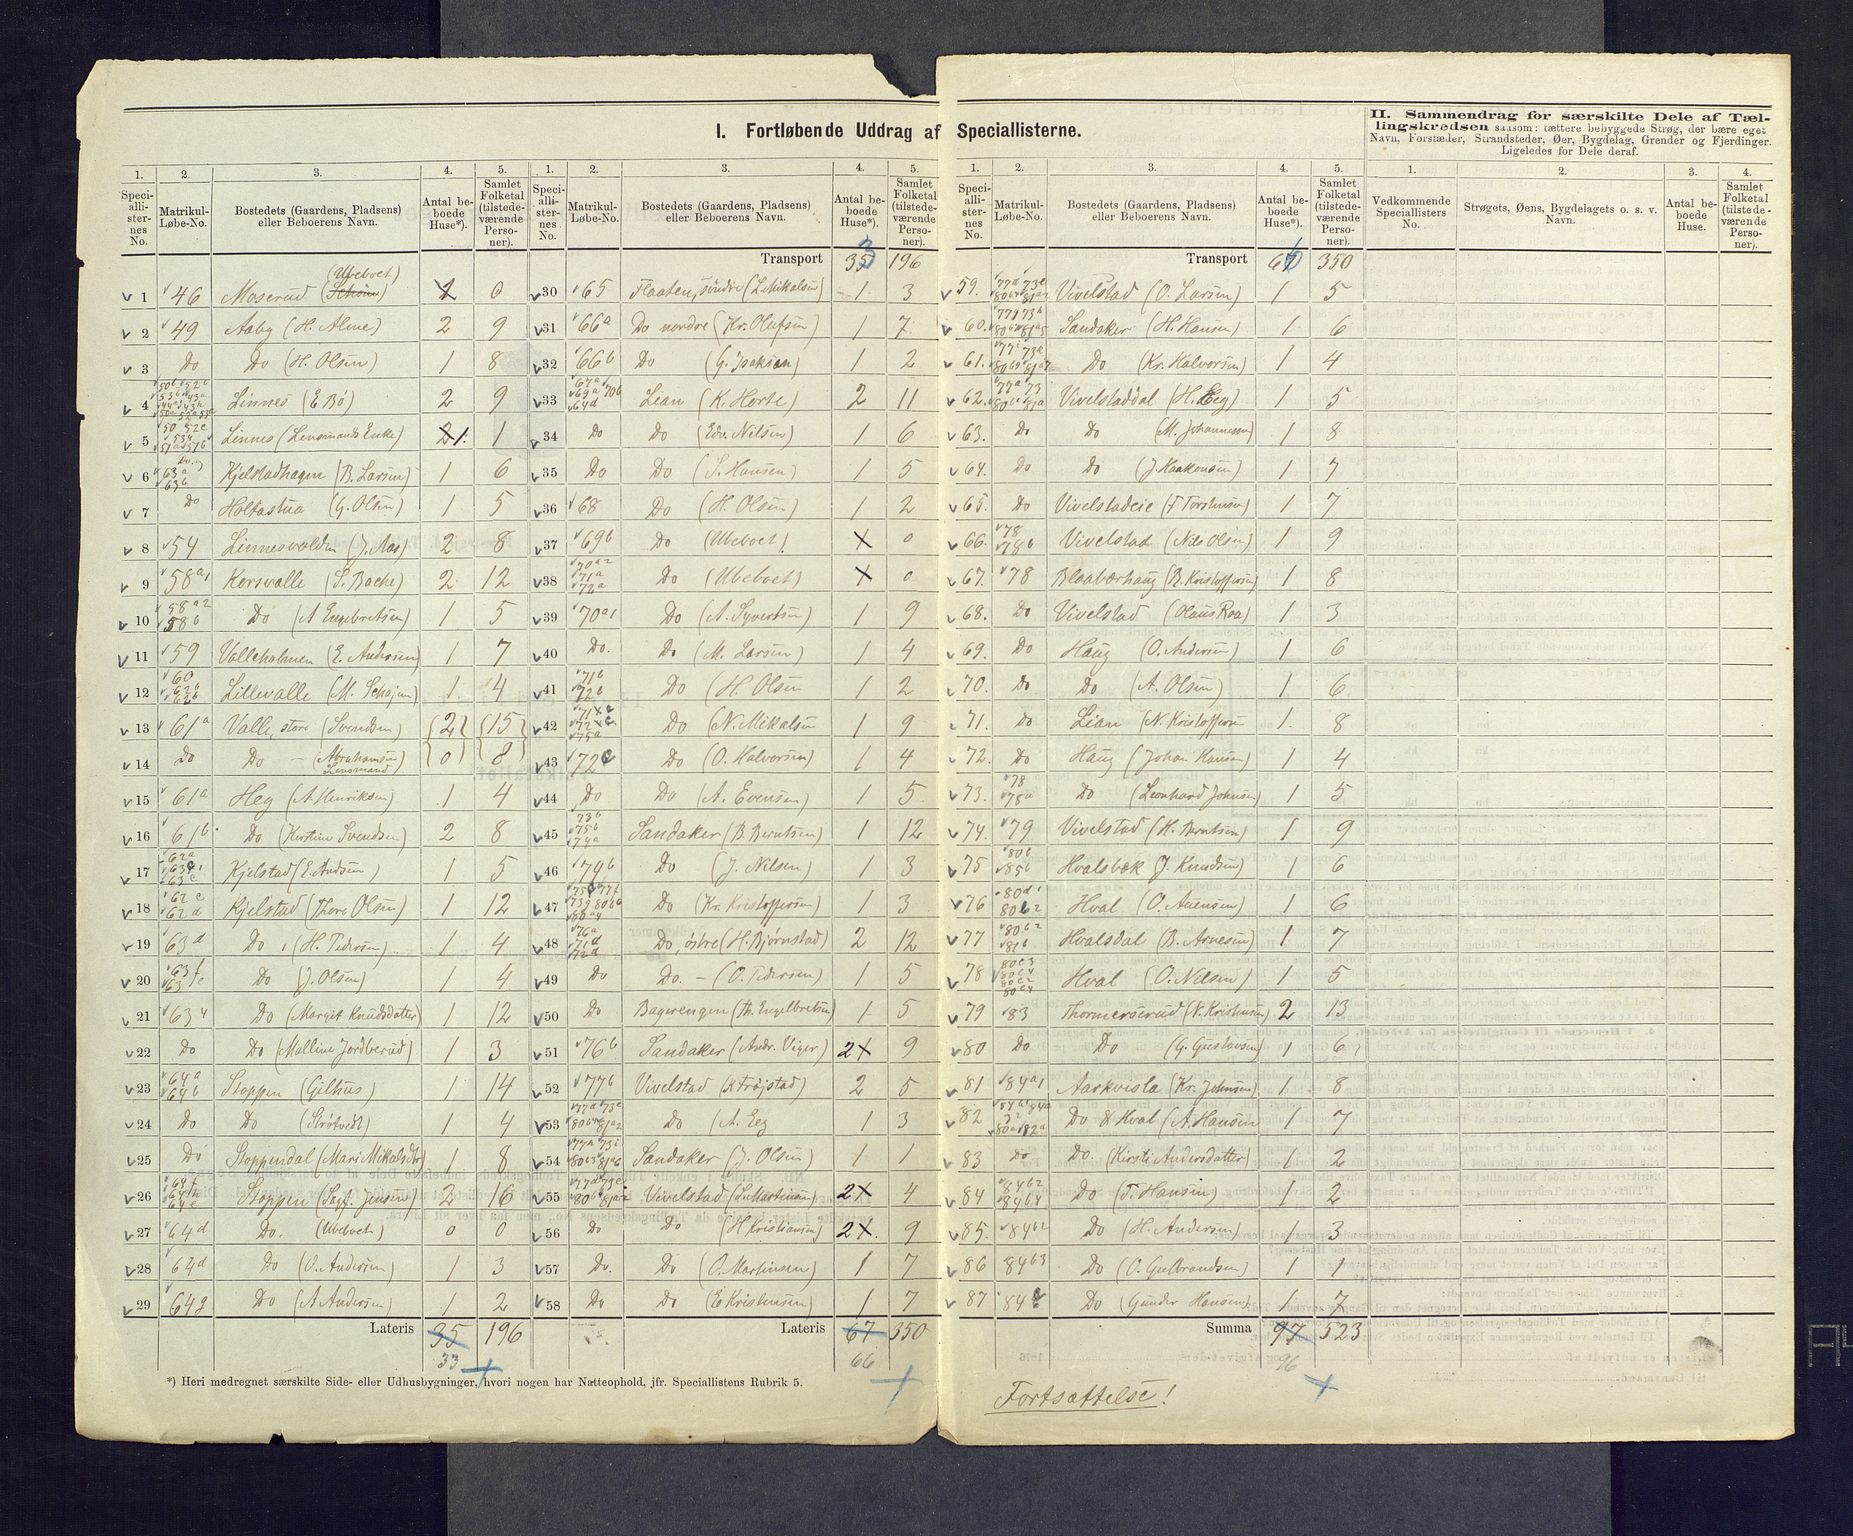 I. Fortløbende Uddrag af Speciallisterne.
II. Sammendrag for særskilte Dele af Tællingskredsen saasom: tættere bebyggede Strøg, der bære eget
Navn, Forstæder, Strandsteder, Øer, Bygdelag, Grender og Fjerdinger.
Ligeledes for Dele deraf.
1. 2 3. 4. 5.
Speciallisternes No. Matrikul-Løbe-No. Bostedets (Gaardens, Pladsens) eller Beboerens Navn. Antal beboede Huse*). Samlet Folketal (tilstedeværende Personer).
1 46 Moserud (Ubeboet) 0
2 49 Aaby (H. Alme) 2 9
3 Do Do (H. Olsen) 1 8
4 Linnes (E Bø) 2 9
5 Linnes (Lensmands Enke) 1. 1
6 63a 63b Kjelstadhagen (B. Larsen) 1 6
7 Do Holtastua (G. Olsen) 1 5
8 54 Linnesvolden (J. Aas) 2 8
9 58a1 Korsvalle (S. Bache) 2 12
10 58a2 58b Do (A Engebretsen) 1 5
11 59 Valleholmen (E. Andersen) 1 7
12 60 62b Lillevalle (M. Schøjen) 1. 4
13 61a Valle, store (Svendsen) 2 15
14 Do Do - (Abrahamsen Lensmand) 0 8
15 61a Heg (A. Henriksen) 1 4
16 61b Do (Kirstine Svendsen) 2 8
17 62a 63c Kjelstad (E. Andsen) 1 5
18 62c 62d Kjelstad (Thore Olsen) 1 12
19 63d Do, (H. Pedersen) 1 4
20 63f Do (J. Olsen) 1 4
21 634 Do (Margit Knudsdatter) 1 12
22 Do Do (Malline Jordberud) 1 3
23 64a 64b Stoppen (Gilhus) 1 14
24 Do Do (Strøtvedt) 1 4
25 Do Stoppendal (Mari Mikalsdtr) 1 8
26 64f 64e Stoppen (Sigf. Jensen) 2 16
27 64d Do. (Ubeboet) 0 0
28 64d Do (O. Andersen) 1 3
29 64g Do (A Andersen) 1 2
Lateris 35 196
33
1. 2. 3. 4. 5.
Speciallisternes No. Matrikul-Løbe-No. Bostedets (Gaardens, Pladsens) eller Beboerens Navn. Antal beboede Huse*). Samlet Folketal (tilstedeværende Personer).
Transport 33 196
30 65 Flaaten, søndre (L. Mikalsen) 1 3
31 66a Do nordre (Kr. Olufsen) 1 7
32 66b Do (G. Isaksen) 1 2
33 67a 69a 70b 64d Lian (K. Horte) 2 11
34 Do Do (Edv. Nilsen) 1 6
35 Do Do (S. Hansen) 1 5
36 68 Do (H. Olsen) 1 2
37 69b Do (Ubeboet) 0
38 70a2 71a 72a Do (Ubeboet) 0
39 70a1 Do (A. Syvertsen) 1 9
40 Do. Do (M. Larsen) 1 4
41 71b 72b Do (H. Olsen 1 2
42 75a Do (N. Mikalsen 1 9
43 72c Do (O. Halvorsen) 1 4
44 Do Do (A. Evensen) 1 5
45 73b 75b 74a Sandaker (B. Berntsen) 1 12
46 74b Do (J. Nilsen) 1 3
47 Do (Kr. Kristoffersen) 1 3
48 76a 71d 72d Do, østre (H. Bjørnstad) 2 12
49 Do Do. - (O. Pedersen) 1 5
50 Do Bagerengen (Th. Engelbretsen) 1 5
51 76b Sandaker (Andr. Viger) 2 9
52 77b Vivelstad (K Frøjstad) 2 5
53 Do (A. Eeg) 1 3
54 Sandaker (J. Olsen) 1 1
55 Vivelstad (L. Martinsen) 2 4
56 Do Do (H Kristiansen) 2 9
57 Do. Do (O. Martinsen) 1 7
58 Do Do (E Kristensen) 1 7
Lateris 67 350
66
1. 2. 3. 4. 5.
Speciallisternes No. Matrikul-Løbe-No. Bostedets (Gaardens, Pladsens) eller Beboerens Navn. Antal beboede Huse*). Samlet Folketal (tilstedeværende Personer).
Transport 66 350
59. Vivelstad (O. Larsen) 1 5
60. Sandaker (H. Hansen) 1 6
61. Do (Kr. Halvorsen) 1 4
62. Vivelstaddal (H. Eeg) 1 5
63. Do Do (M. Johannesen) 1 8
64. Do Do (J. Haakonsen) 1 7
65. Do Vivelstadeie (F Torstensen) 1 7
66. 78 78b Vivelstad (Nils Olsen) 1 9
67. 78 Blaabærhaug (B. Kristoffersen) 1 8
68. Do Vivelstad (Olaus Roa) 1 3
69. Do Haug (O. Andersen) 1 6
70. Do Do (A. Olsen) 1 6
71. Do Lian (N. Kristoffersen 1. 8
72. Do Haug (Johan Hansen) 1 4
73. 78 75a Do (Leonhard Johnsen) 1 5
74. 79 Vivelstad (H. Berntsen) 1 9
75 80b 85b Hvalsbæk (J. Knudsen) 1 6
76 80d1 80b2 Hval (O. Auensen) 1 6
77 80b2 81b Hvalsdal (B. Arnesen) 1 7
78 80c3 80c4 80c2 80c4 Hval (O. Nilsen) 1 5
79 83 Thormerserud (N. Kristensen) 2 13
80 Do Do (G. Gustavsen) 1 6
81 84a1 Aarkvisla (Kr. Johnsen) 1 8
82 Do & Hval (A. Hansen 1 7
83 Do Do. (Kirsti Andersdatter) 1 2
84 84b2 84b4 Do (T. Hansen) 1 2
85. 84b2 Do (H. Andersen) 1 3
86 84b3 Do (O. Gulbrandsen) 1 1
87 84c Do (Gunder Hansen) 1 7
Summa 97 523
96
1. 2. 3. 4.
Vedkommende Speciallisters No. Strøgets, Øens, Bygdelagets o. s. v. Navn. Antal beboede Huse. Samlet Folketal (tilstedeværende Personer).
*) Heri medregnet særskilte Side- eller Udhusbygninger, hvori nogen har Natteophold, jfr. Speciallistens Rubrik 5.
Fortsættelse!